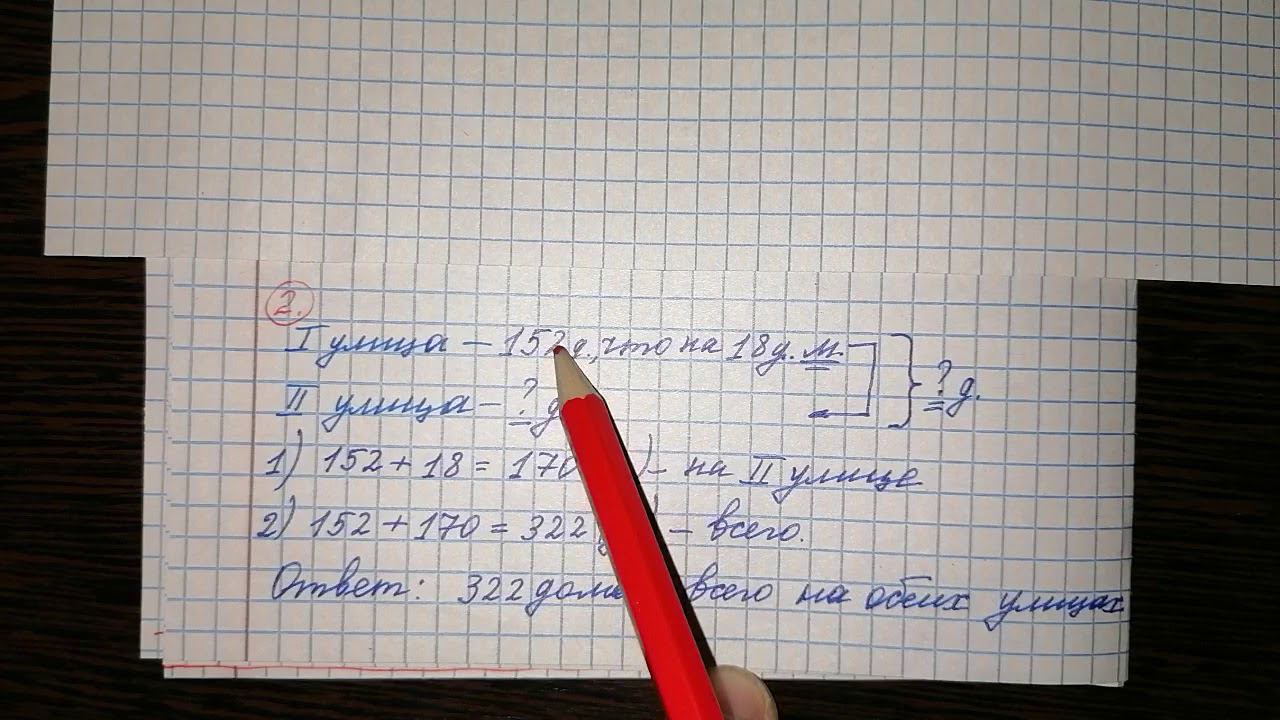 2.
I улица – 152 д., что на 18 д. м.
II улица – ? д ? д.
1) 152 + 18 = 170 ) – на II улице
2) 152 + 170 = 322 – всего.
Ответ: 322 дома всего на обеих улицах